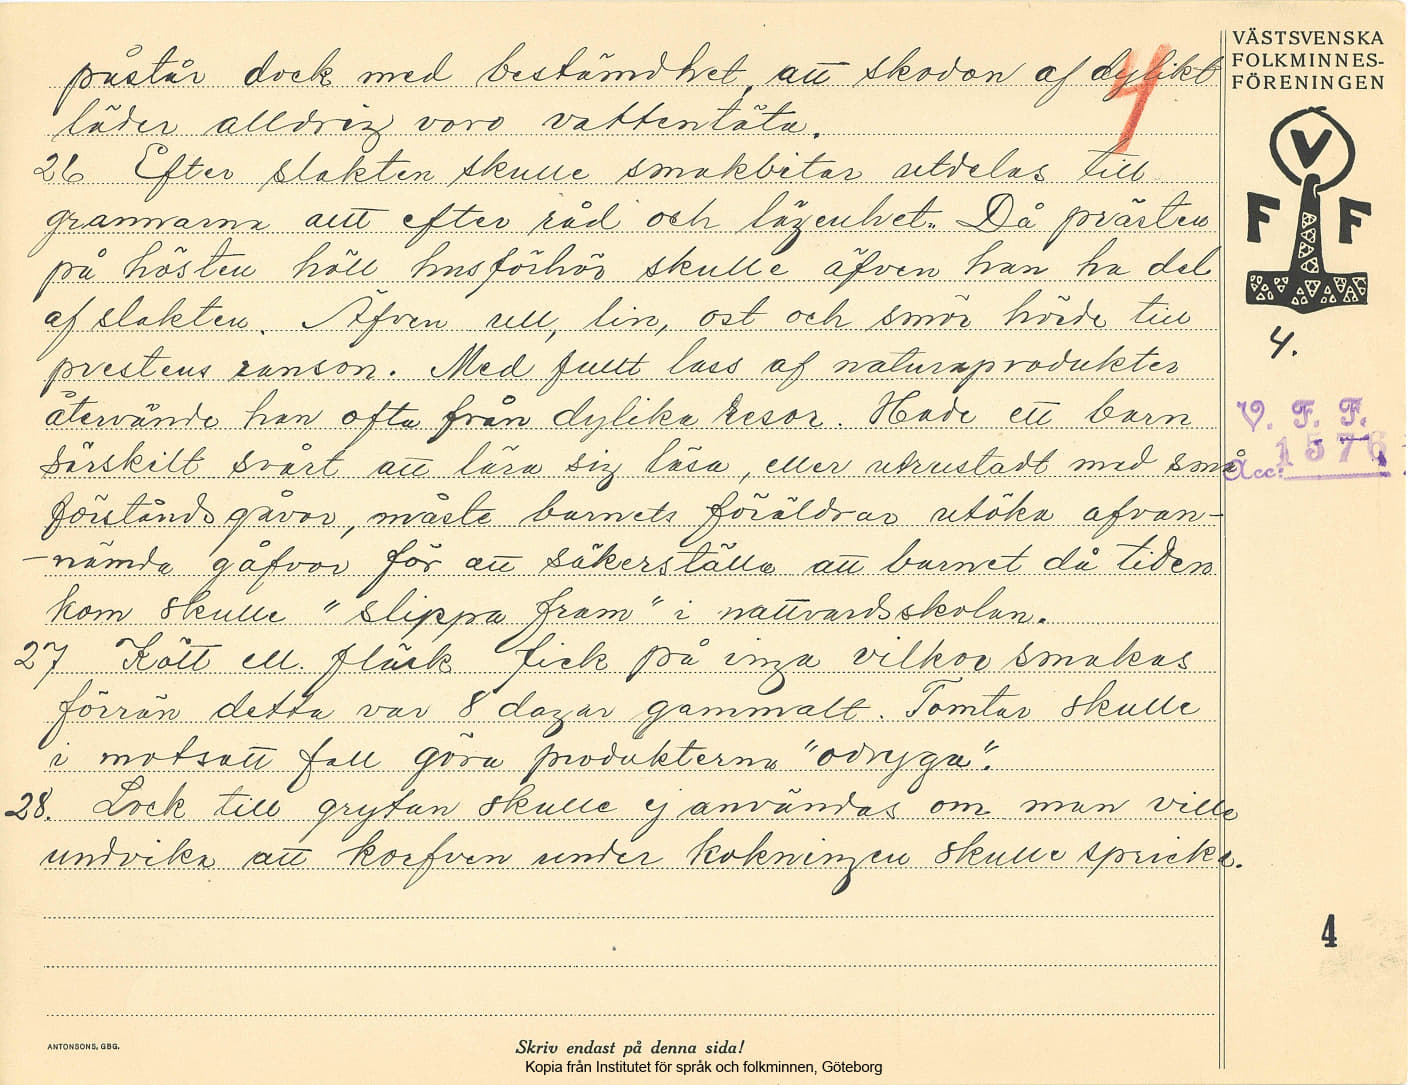 påstår dock med bestämdhet, att skodon af dylikt
läder alldrig voro vattentäta.
26 Efter slakten skulle smakbitar utdelas till
grannarna allt efter råd och lägenhet. Då prästen
på hösten höll husförhör skulle äfven han ha del
af slakten. Äfven ull, lin, ost och smör hörde till
prestens ranson. Med fullt lass af naturaprodukter
återvände han ofta från dylika resor. Hade ett barn
särskilt svårt att lära sig läsa, eller utrustadt med små
förståndsgåvor, måste barnets föräldrar utöka afvan-
-nämda gåfvor för att säkerställa att barnet då tiden
kom skulle "slippa fram" i nattvardsskolan.
27 Kött ell. fläsk fick på inga vilkor smakas
förrän detta var 8 dagar gammalt. Tomtar skulle
i motsatt fall göra produkterna "odryga".
28. Lock till grytan skulle ej användas om man ville
undvika att korfven under kokningen skulle spricka.
4
VÄSTSVENSKA
FOLKMINNES-
FÖRENINGEN
V
F F
4.
V. F. F.
Acc: 1576
4
ANTONSONS, GBG.
Skriv endast på denna sida!
Kopia från Institutet för språk och folkminnen, Göteborg